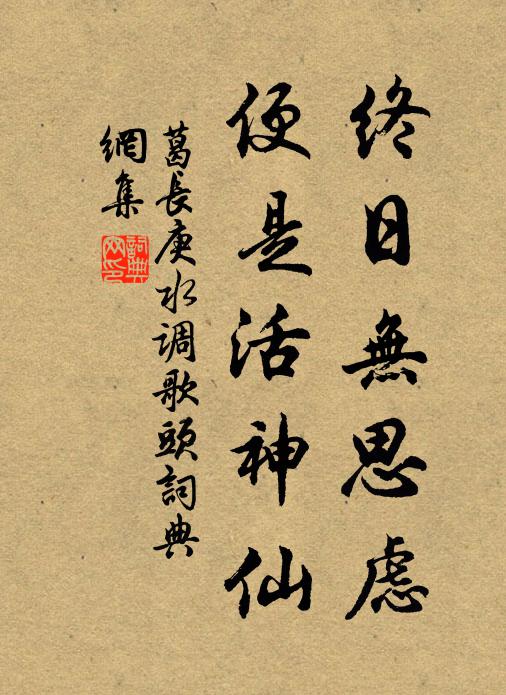 終日無思慮
便是活神仙
葛長庚水调歌頭詞典
網集
詞典网印